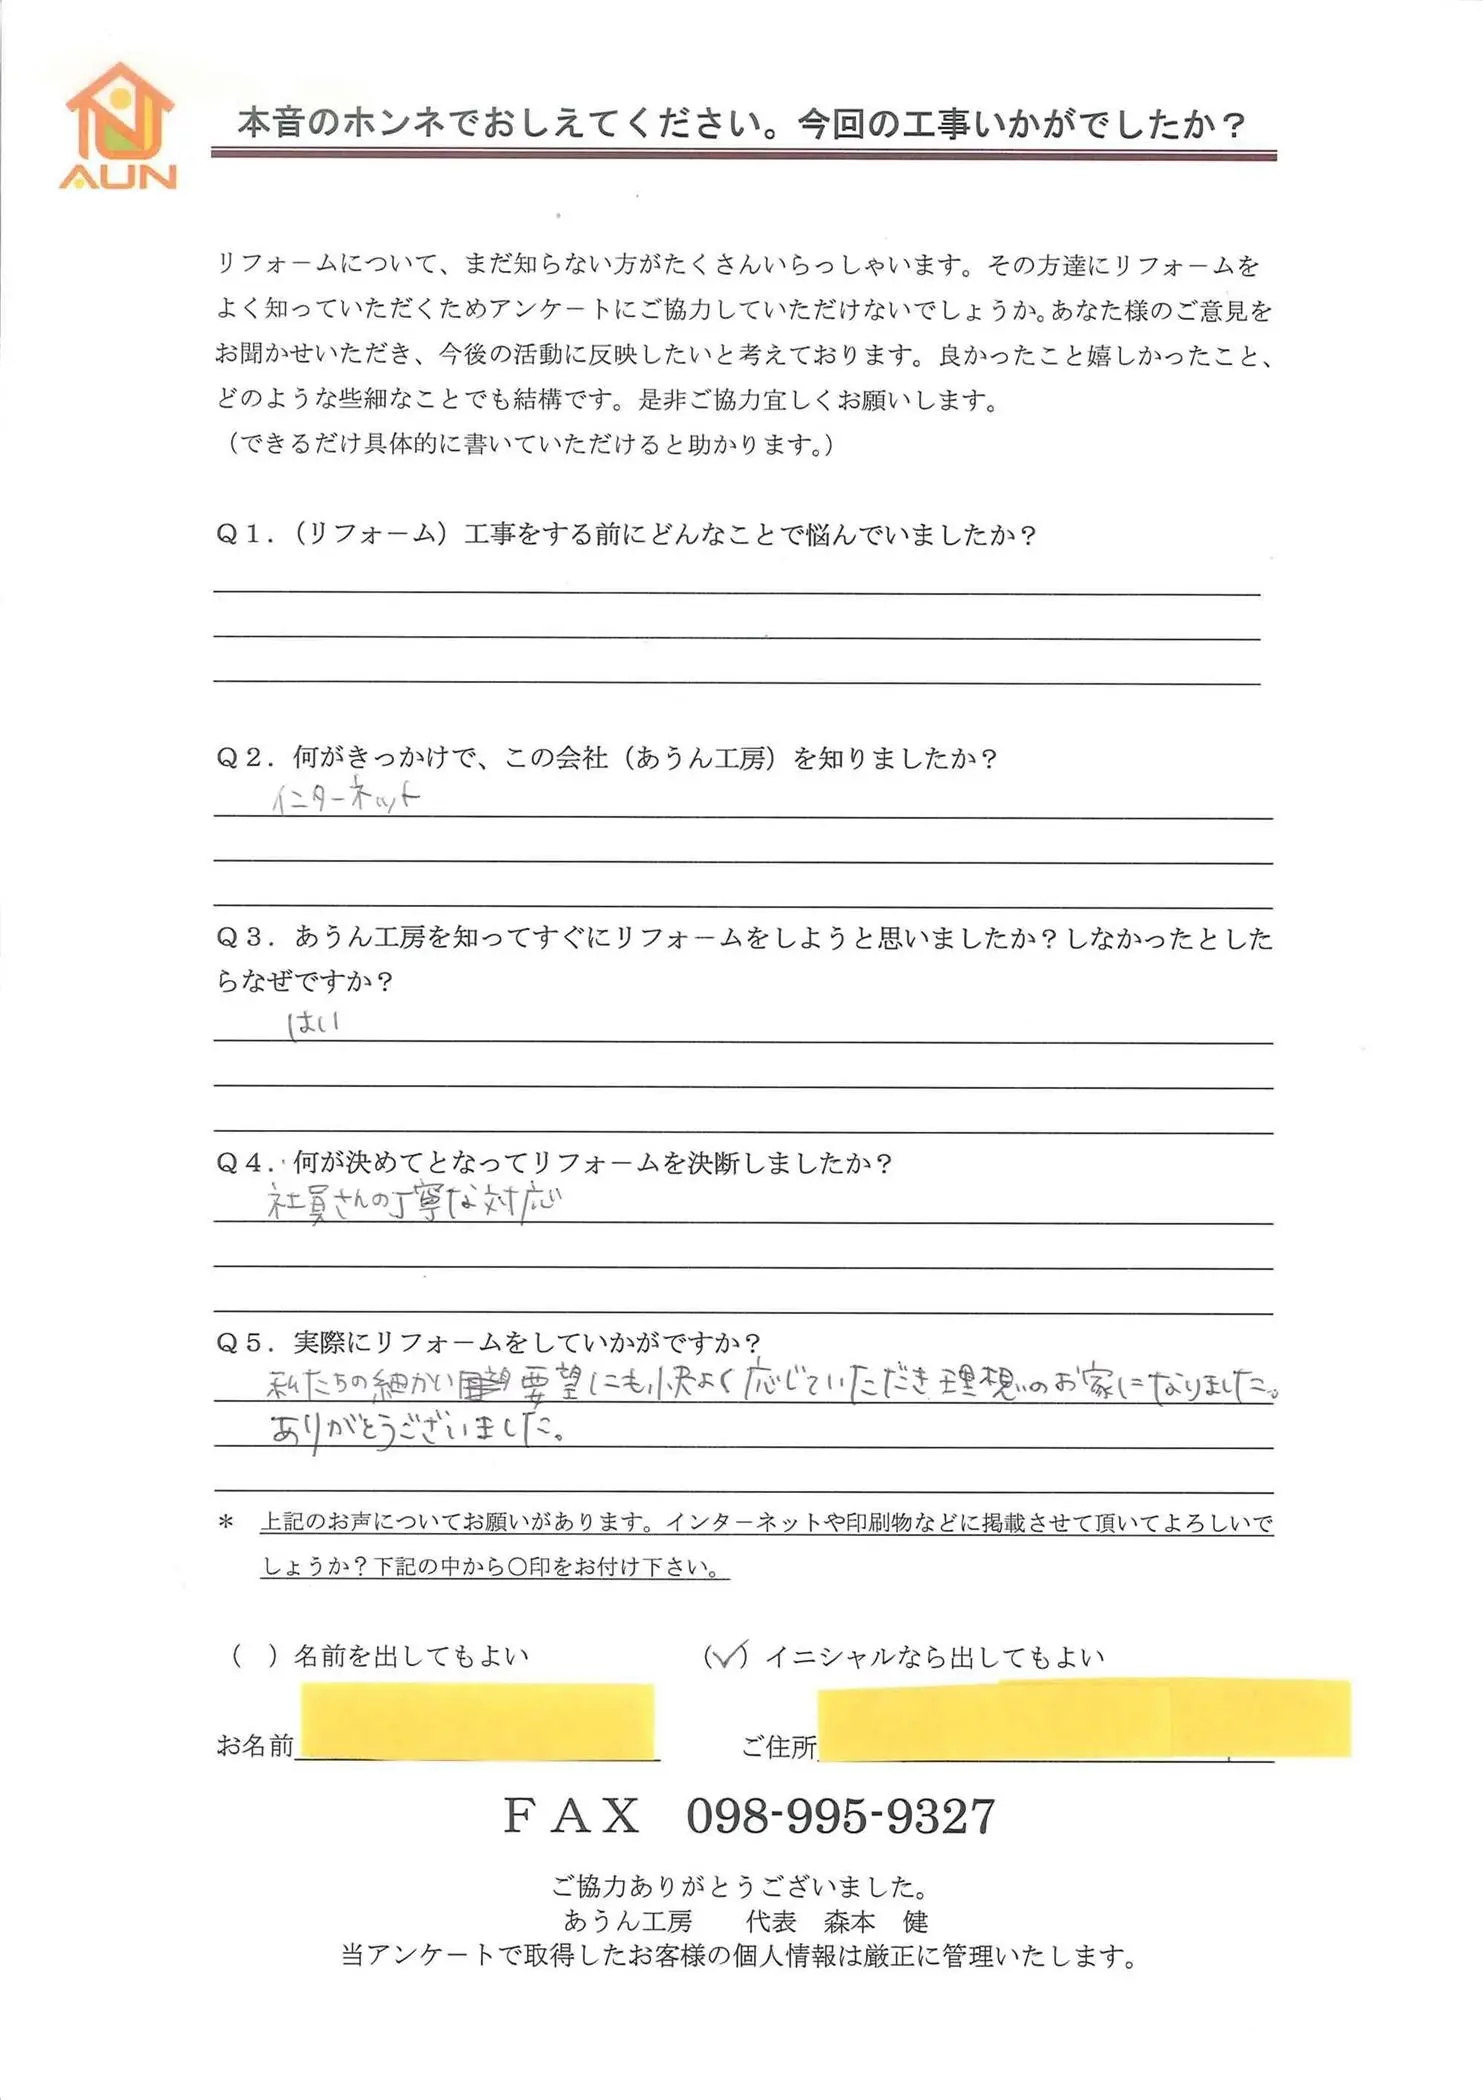 AUN
本音のホンネでおしえてください。今回の工事いかがでしたか？
リフォームについて、まだ知らない方がたくさんいらっしゃいます。その方達にリフォームを
よく知っていただくためアンケートにご協力していただけないでしょうか。あなた様のご意見を
お聞かせいただき、今後の活動に反映したいと考えております。良かったこと嬉しかったこと、
どのような些細なことでも結構です。是非ご協力宜しくお願いします。
（できるだけ具体的に書いていただけると助かります。）
Ｑ１．（リフォーム）工事をする前にどんなことで悩んでいましたか？
Ｑ２．何がきっかけで、この会社（あうん工房）を知りましたか？
インターネット
Ｑ３．あうん工房を知ってすぐにリフォームをしようと思いましたか？しなかったとした
らなぜですか？
はい
Ｑ４．何が決めてとなってリフォームを決断しましたか？
社員さんの丁寧な対応
Ｑ５．実際にリフォームをしていかがですか？
私たちの細かい要望にも快よく応じていただき理想いのお家になりました。
ありがとうございました。
＊　上記のお声についてお願いがあります。インターネットや印刷物などに掲載させて頂いてよろしいで
しょうか？下記の中から〇印をお付け下さい。
（　）名前を出してもよい　（✓）イニシャルなら出してもよい
お名前　ご住所
ＦＡＸ　098-995-9327
ご協力ありがとうございました。
あうん工房　　代表　森本　健
当アンケートで取得したお客様の個人情報は厳正に管理いたします。